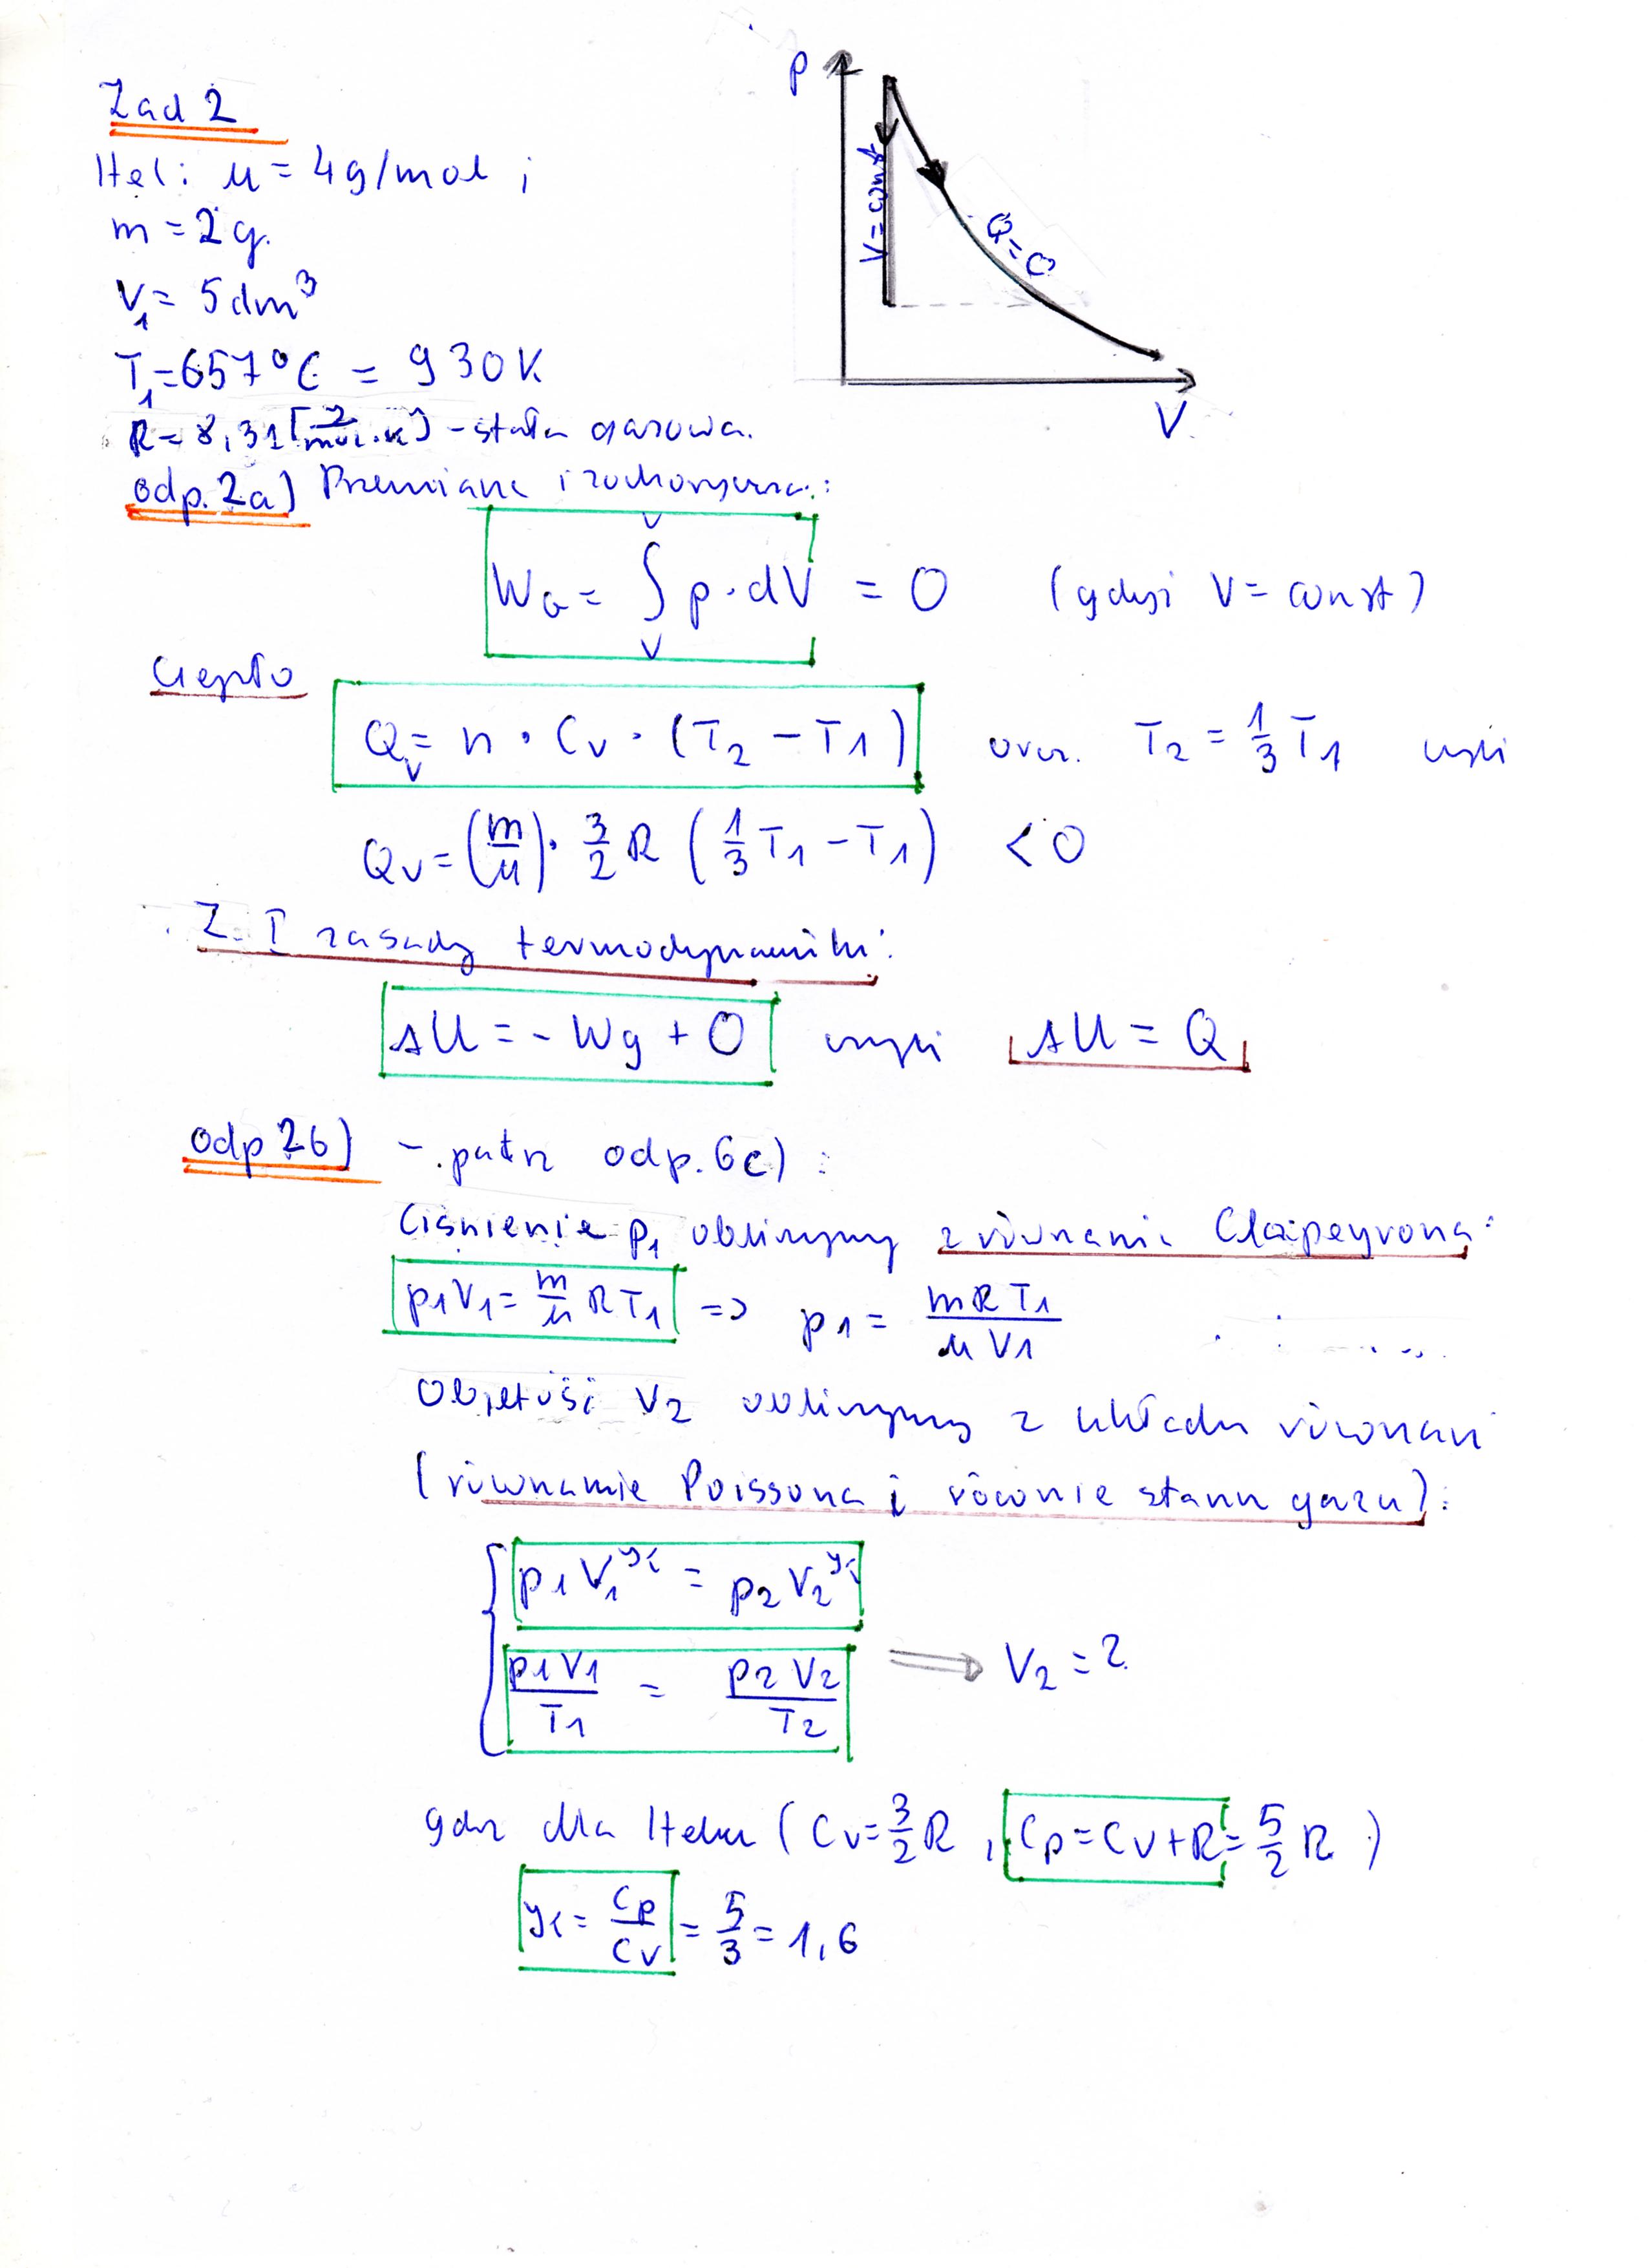 Zad 2
Hel: μ = 4g/mol ;
m = 2g.
V₁ = 5dm³
T₁ = 657°C = 930K
R = 8,31 [J/mol·K] - stała gazowa.
p
V = const
Q = 0
V
odp. 2a) Przemiana izochoryczna:
W_G = ∫_V^V p·dV = 0 (gdyż V = const)
Ciepło
Q_V = n · Cv · (T₂ - T₁) oraz T₂ = 1/3 T₁ czyli
Qv = (m/μ) · 3/2 R (1/3 T₁ - T₁) < 0
Z I zasady termodynamiki:
ΔU = - Wg + Q czyli ΔU = Q
odp 2b) - patrz odp. 6c) :
Ciśnienie p₁ obliczymy z równania Clapeyrona:
p₁V₁ = m/μ RT₁ => p₁ = mRT₁/μV₁
Objętość V₂ obliczymy z układu równań
(równanie Poissona i równanie stanu gazu):
p₁V₁^ϰ = p₂V₂^ϰ
p₁V₁/T₁ = p₂V₂/T₂ => V₂ = ?
gdz dla Helu (Cv = 3/2 R , Cp = Cv + R = 5/2 R )
ϰ = Cp/Cv = 5/3 = 1,6